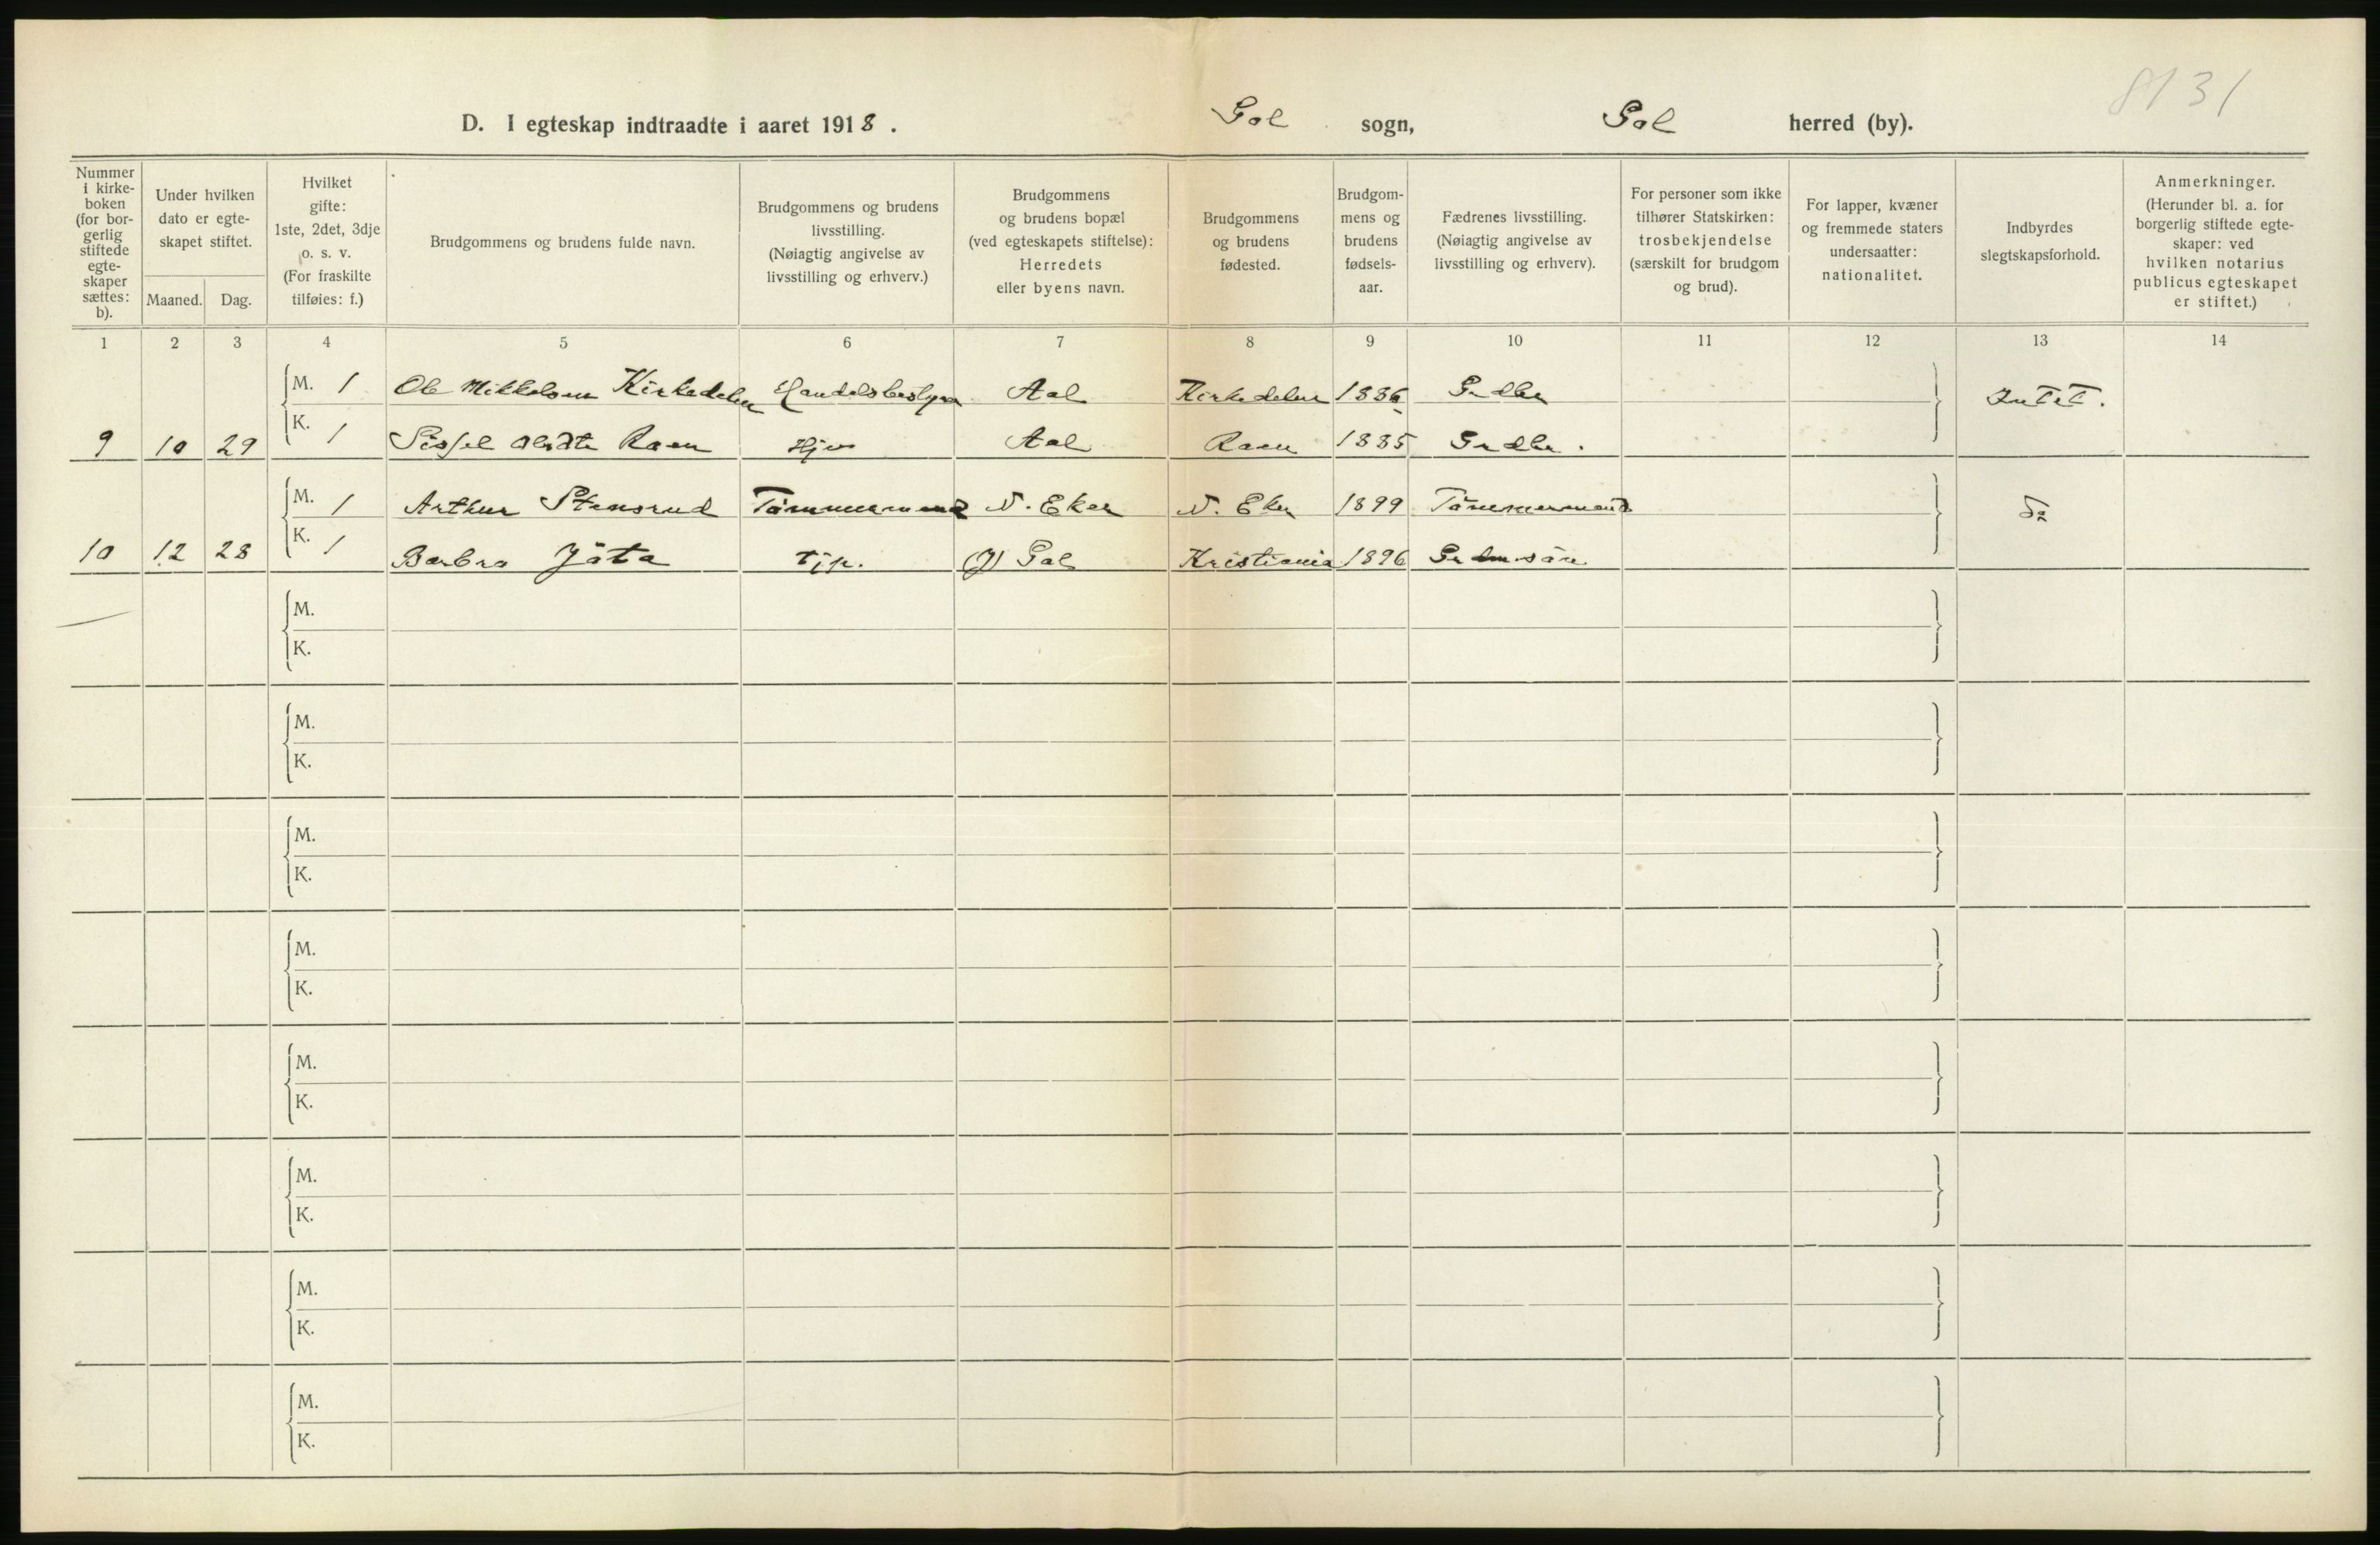 8131
D. I egteskap indtraadte i aaret 1918. Gol sogn, Gol herred (by).
Nummer i kirkeboken (for borgerlig stiftede egteskaper sættes: b).
Under hvilken dato er egteskapet stiftet.
Maaned. Dag.
Hvilket gifte: 1ste, 2det, 3dje o. s. v. (For fraskilte tilføies: f.)
Brudgommens og brudens fulde navn.
Brudgommens og brudens livsstilling. (Nøiagtig angivelse av livsstilling og erhverv.)
Brudgommens og brudens bopæl (ved egteskapets stiftelse): Herredets eller byens navn.
Brudgommens og brudens fødested.
Brudgommens og brudens fødselsaar.
Fædrenes livsstilling. (Nøiagtig angivelse av livsstilling og erhverv).
For personer som ikke tilhører Statskirken: trosbekjendelse (særskilt for brudgom og brud).
For lapper, kvæner og fremmede staters undersaatter: nationalitet.
Indbyrdes slegtskapsforhold.
Anmerkninger. (Herunder bl. a. for borgerlig stiftede egteskaper: ved hvilken notarius publicus egteskapet er stiftet.)
1 2 3 4 5 6 7 8 9 10 11 12 13 14
M. 1 Ole Mikkelsen Kirkedelen Handelsbestyrer Aal Kirkedelen 1886 Grdbr Intet.
9 10 29 K. 1 Sissel Raen Aal Raen 1885 Grdbr.
M. 1 Arthur Stensrud Tömmermand N. Eker N. Eker 1899 Tömmermand Do
10 12 28 K. 1 Barbro Jöta Tjp. (J) Gol Kristiania 1896
M.
K.
M.
K.
M.
K.
M.
K.
M.
K.
M.
K.
M.
K.
M.
K.